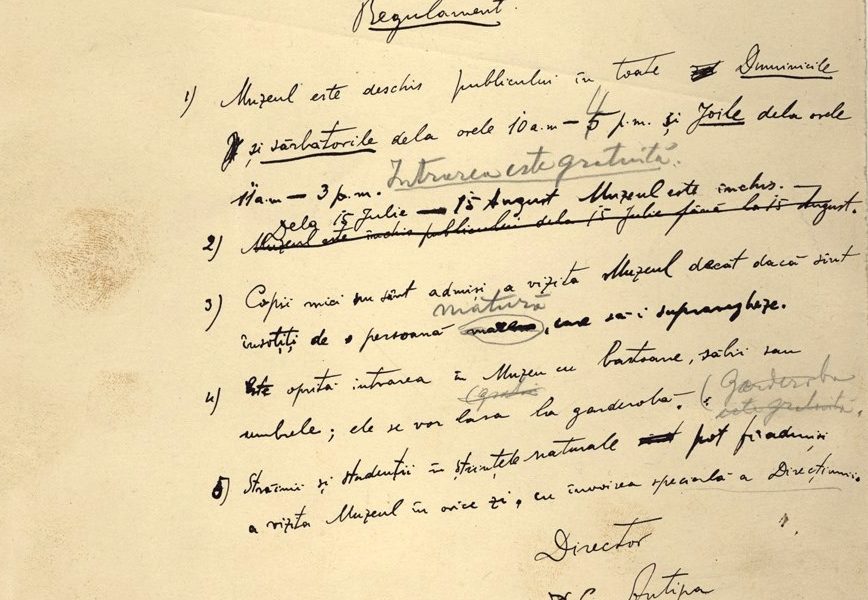 Regulament
1) Muzeul este deschis publicului în toate Duminicile
și sărbătorile dela orele 10 a.m — 4 p.m. și Joile dela orele
11 a.m — 3 p.m. Intrarea este gratuită.
Dela 15 Julie — 15 August Muzeul este închis.
2) Muzeul este închis publicului dela 15 Julie până la 15 August.
3) Copii mici nu sânt admiși a vizita Muzeul decât dacă sînt
matură
însotiți de o persoană mare, care să-i supravegheze.
4) Este oprită intrarea în Muzeu cu bastoane, săbii sau
umbrele; ele se vor lasa la garderobă. (Garderoba
este gratuită.
5) Străinii și studenții în științele naturale pot fi admiși
a vizita Muzeul în orice zi, cu învoirea specială a Direcțiunii.
Director
Antipa